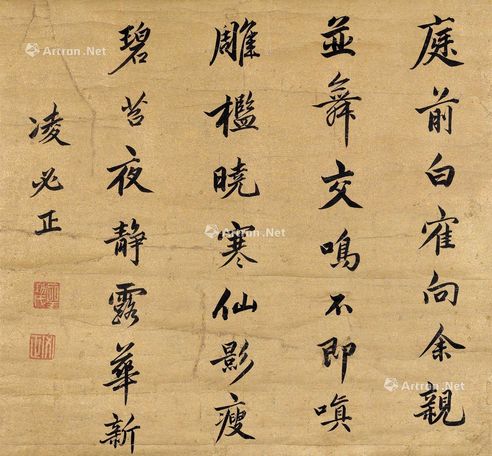 庭前白寉向余親
並舞交鳴不即嗔
雕檻曉寒仙影瘦
碧苔夜静露華新
凌必正
Artron.Net
Artron.Net
Artron.Net